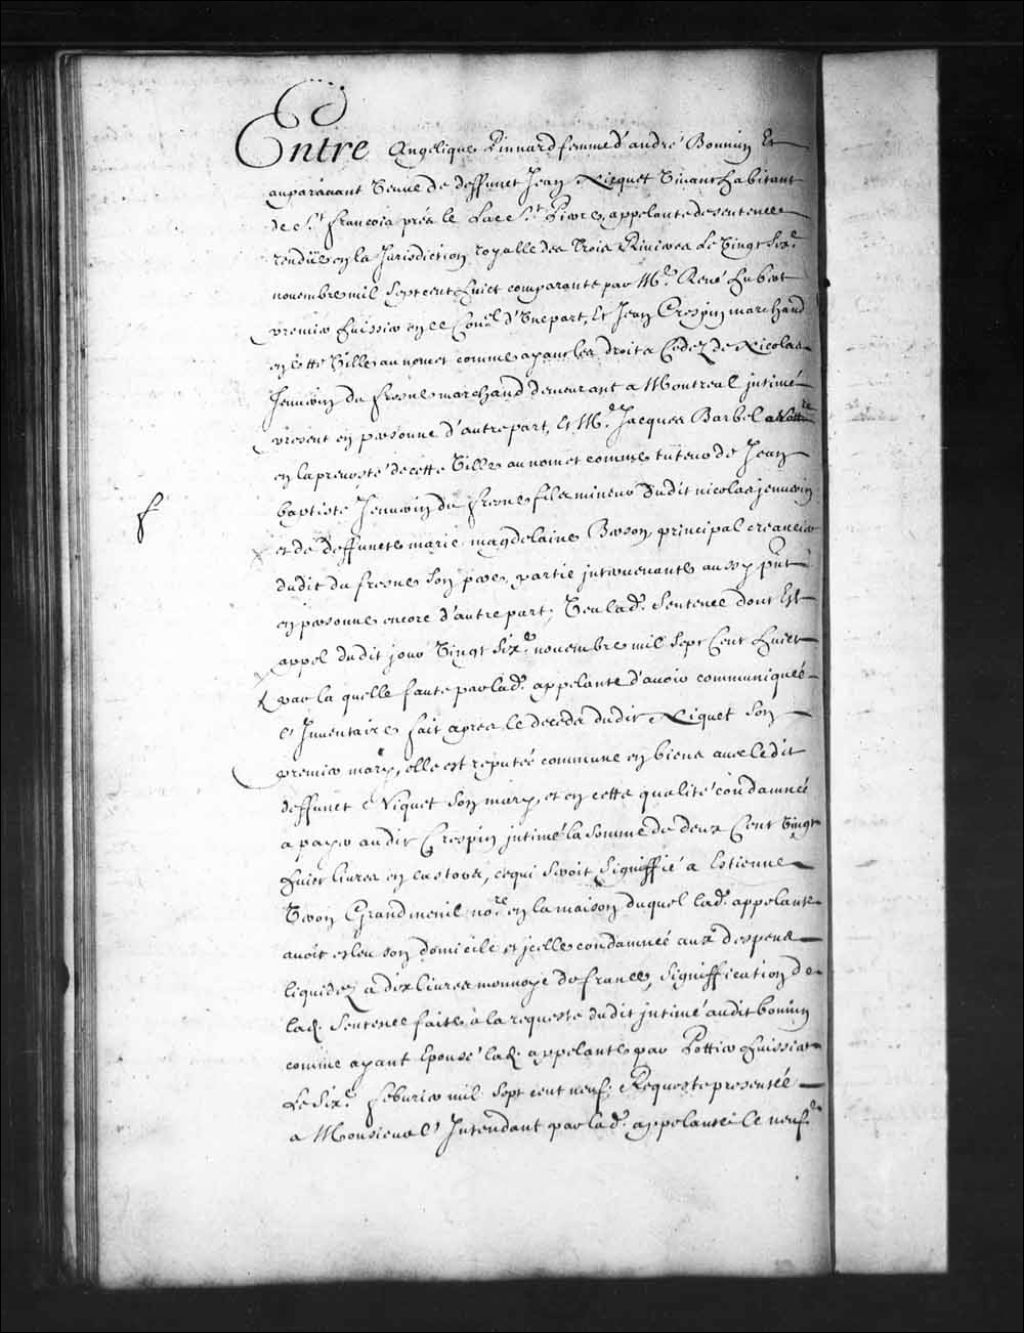 Entre Angelique Pinnard femme d'andré Bonnin Et
auparauant Veuue de deffunct Jean Niquet Viuant habitant
de St. francois prés le Lac St. Pierre, appelante de sentence
rendüe en la Jurisdiction royalle des Trois Riuieres Le Vingt sixe.
nouembre mil sept cent huict comparante par Me. René hubert
premier huissier en ce Conel. d'Vne part, Et Jean Crespin marchand
en cette Ville au nom et comme ayant les droits Cedez de Nicolas
Jenurin du fresne marchand demeurant a Montreal intimé
present en personne d'autre part, Et Me. Jacques Barbel Nottre
en la preuosté de cette Ville au nom et comme tuteur de Jean
baptiste Jenurin du fresne fils mineur dudit nicolas jenurin
et de deffuncte marie magdelaine Berson, principal creancier
dudit du fresne son pere, partie interuenante aussy pnt
en personne encore d'autre part; Veu lade. Sentence dont Est
appel dudit jour Vingt sixe. nouembre mil sept Cent huict
par la quelle faute par lade. appelante d'auoir communiqué
l'Inuentaire fait apres le deceds dudit Niquet son
premier mary, elle est reputée commune en biens auec ledit
deffunct Niquet son mary, et en cette qualité condamnée
a payer audit Crespin intimé la somme de deux Cent Vingt
huict liures en castors, ce qui seroit signiffié a Estienne
Veron Grandmenil nore. en la maison duquel lade. appelante
auoit esleu son domicile et icelle condamnée aux despens
liquidez a dix liures monnoye de france, signiffication de
lade. Sentence faite à la requeste dudit intimé audit bonnin
comme ayant Epousé lade. appelante par Pottier huissier
Le sixe. feburier mil sept cent neuf; Requeste presentée
a Monsieur l'Intendant par lade. appelante le neufe.
f